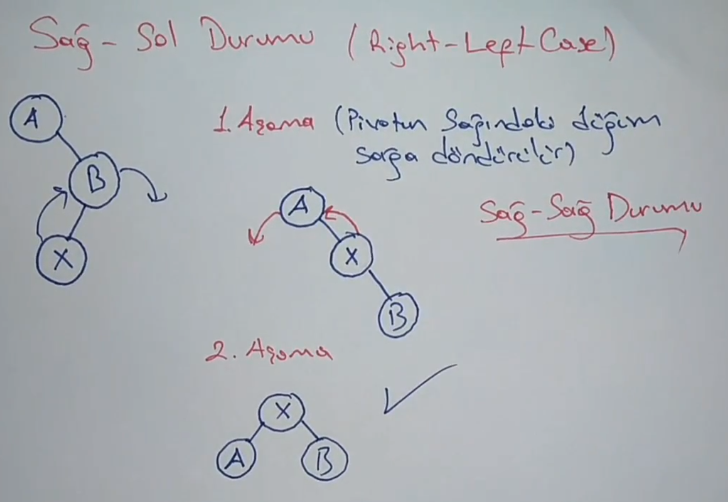 Sağ - Sol Durumu (Right-Left Case)
A
B
X
1. Aşama (Pivotun Sağındaki düğüm
sağa döndürülür)
A
X
B
Sağ-Sağ Durumu
2. Aşama
X
A
B